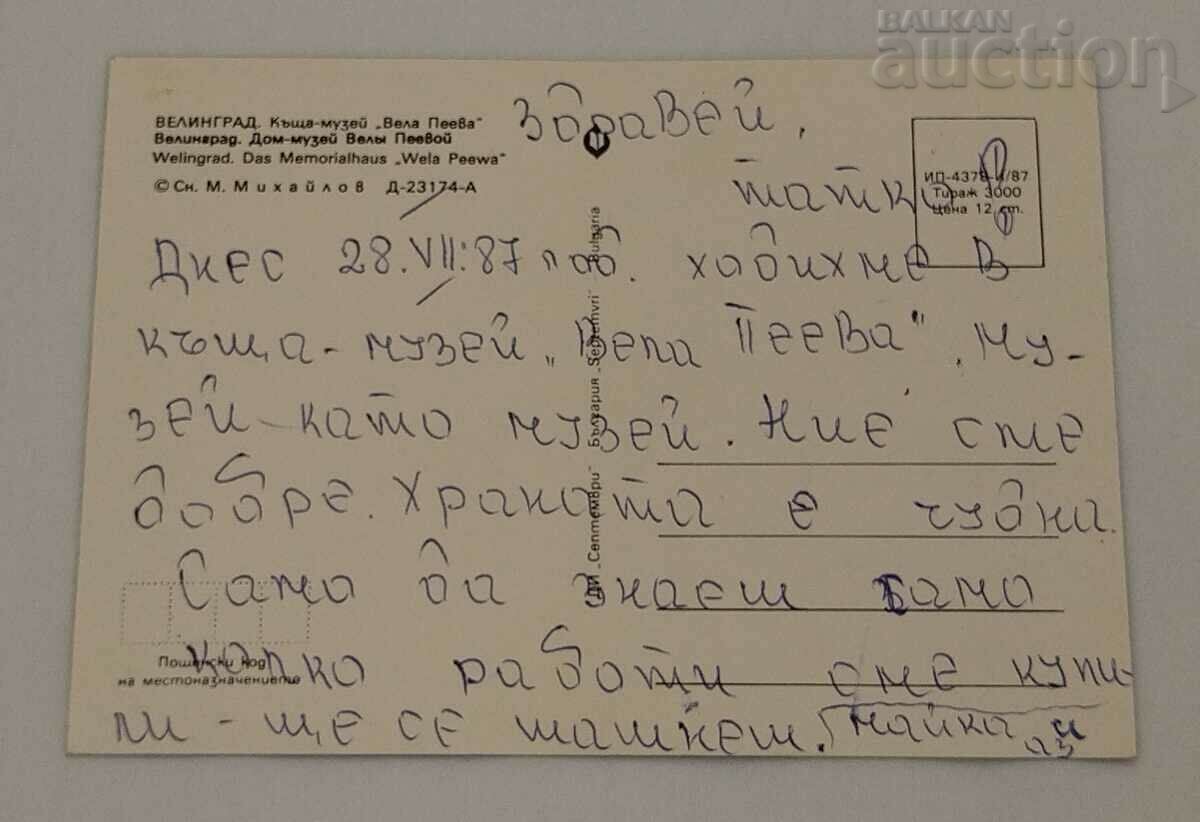 BALKAN
auction
ВЕЛИНГРАД. Къща-музей „Вела Пеева"
Велинград. Дом-музей Велы Пеевой
Welingrad. Das Memorialhaus „Wela Peewa"
© Сн. М. Михайлов Д-23174-А
ИП-4378-/87
Тираж 3000
Цена 12 ст.
ДИ „Септември" България „Septemvri" Bulgaria
Пощенски код
на местоназначението
Здравей,
татко!
Днес 28.VII.87 год. ходихме в
къща-музей „Вела Пеева". Му-
зей като музей. Ние сме
добре. Храната е чудна.
Само да знаеш само
колко работи сме купи-
ли - ще се шашнеш. майка и
аз